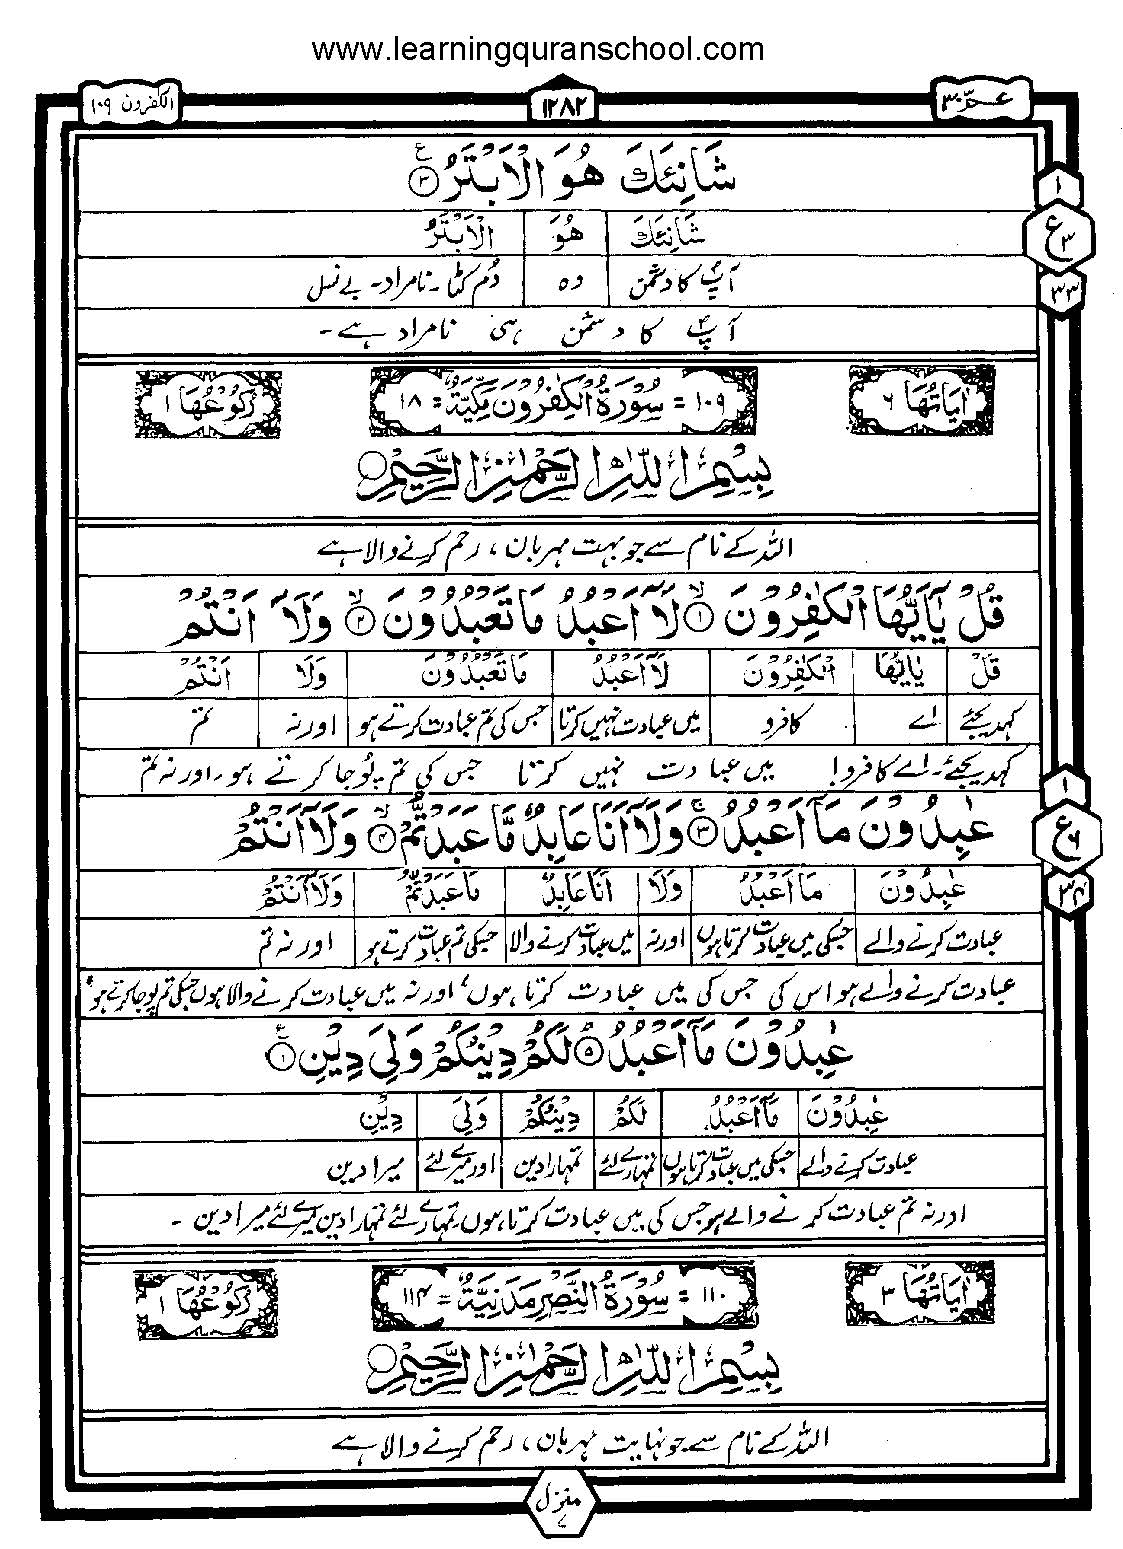 www.learningquranschool.com
عمّ ٣٠ ١٢٨٢ الكفرون ١٠٩
شَانِئَكَ هُوَ الْاَبْتَرُ ۝٣ ع
١
ع ٣
٣٣
شَانِئَكَ هُوَ الْاَبْتَرُ
آپؐ کا دشمن وہ دُم کٹا۔ نامراد۔ بے نسل
آپؐ کا دشمن ہی نامراد ہے۔
اٰيَاتُهَا ٦ ١٠٩ = سُوْرَةُ الْكٰفِرُوْنَ مَكِّيَّةٌ = ١٨ رُكُوْعُهَا ١
بِسْمِ اللّٰهِ الرَّحْمٰنِ الرَّحِيْمِ
اللہ کے نام سے جو بہت مہربان ، رحم کرنے والا ہے
قُلْ يٰۤاَيُّهَا الْكٰفِرُوْنَ ۝١ۙ لَاۤ اَعْبُدُ مَا تَعْبُدُوْنَ ۝٢ۙ وَلَاۤ اَنْتُمْ
قُلْ يٰاَيُّهَا الْكٰفِرُوْنَ لَاۤ اَعْبُدُ مَا تَعْبُدُوْنَ وَلَا اَنْتُمْ
کہدیجئے اے کافرو میں عبادت نہیں کرتا جس کی تم عبادت کرتے ہو اور نہ تم
کہدیجئے۔ اے کافرو! میں عبادت نہیں کرتا جس کی تم پوجا کرتے ہو۔ اور نہ تم
عٰبِدُوْنَ مَاۤ اَعْبُدُ ۝٣ۚ وَلَاۤ اَنَا عَابِدٌ مَّا عَبَدْتُّمْ ۝٤ۙ وَلَاۤ اَنْتُمْ
١
ع ٦
٣٤
عٰبِدُوْنَ مَا اَعْبُدُ وَلَا اَنَا عَابِدٌ مَا عَبَدْتُّمْ وَلَاۤ اَنْتُمْ
عبادت کرنے والے جسکی میں عبادت کرتا ہوں اور نہ میں عبادت کرنے والا جسکی تم عبادت کرتے ہو اور نہ تم
عبادت کرنے والے ہو اس کی جس کی میں عبادت کرتا ہوں، اور نہ میں عبادت کرنے والا ہوں جسکی تم پوجا کرتے ہو،
عٰبِدُوْنَ مَاۤ اَعْبُدُ ۝٥ لَكُمْ دِيْنُكُمْ وَلِيَ دِيْنِ ۝١ ع
عٰبِدُوْنَ مَاۤ اَعْبُدُ لَكُمْ دِيْنُكُمْ وَلِيَ دِيْنِ
عبادت کرنے والے جسکی میں عبادت کرتا ہوں تمہارے لئے تمہارا دین اور میرے لئے میرا دین
اور نہ تم عبادت کرنے والے ہو جس کی میں عبادت کرتا ہوں تمہارے لئے تمہارا دین میرے لئے میرا دین ۔
اٰيَاتُهَا ٣ ١١٠ = سُوْرَةُ النَّصْرِ مَدَنِيَّةٌ = ١١٤ رُكُوْعُهَا ١
بِسْمِ اللّٰهِ الرَّحْمٰنِ الرَّحِيْمِ
اللہ کے نام سے جو نہایت مہربان ، رحم کرنے والا ہے
منزل ٧